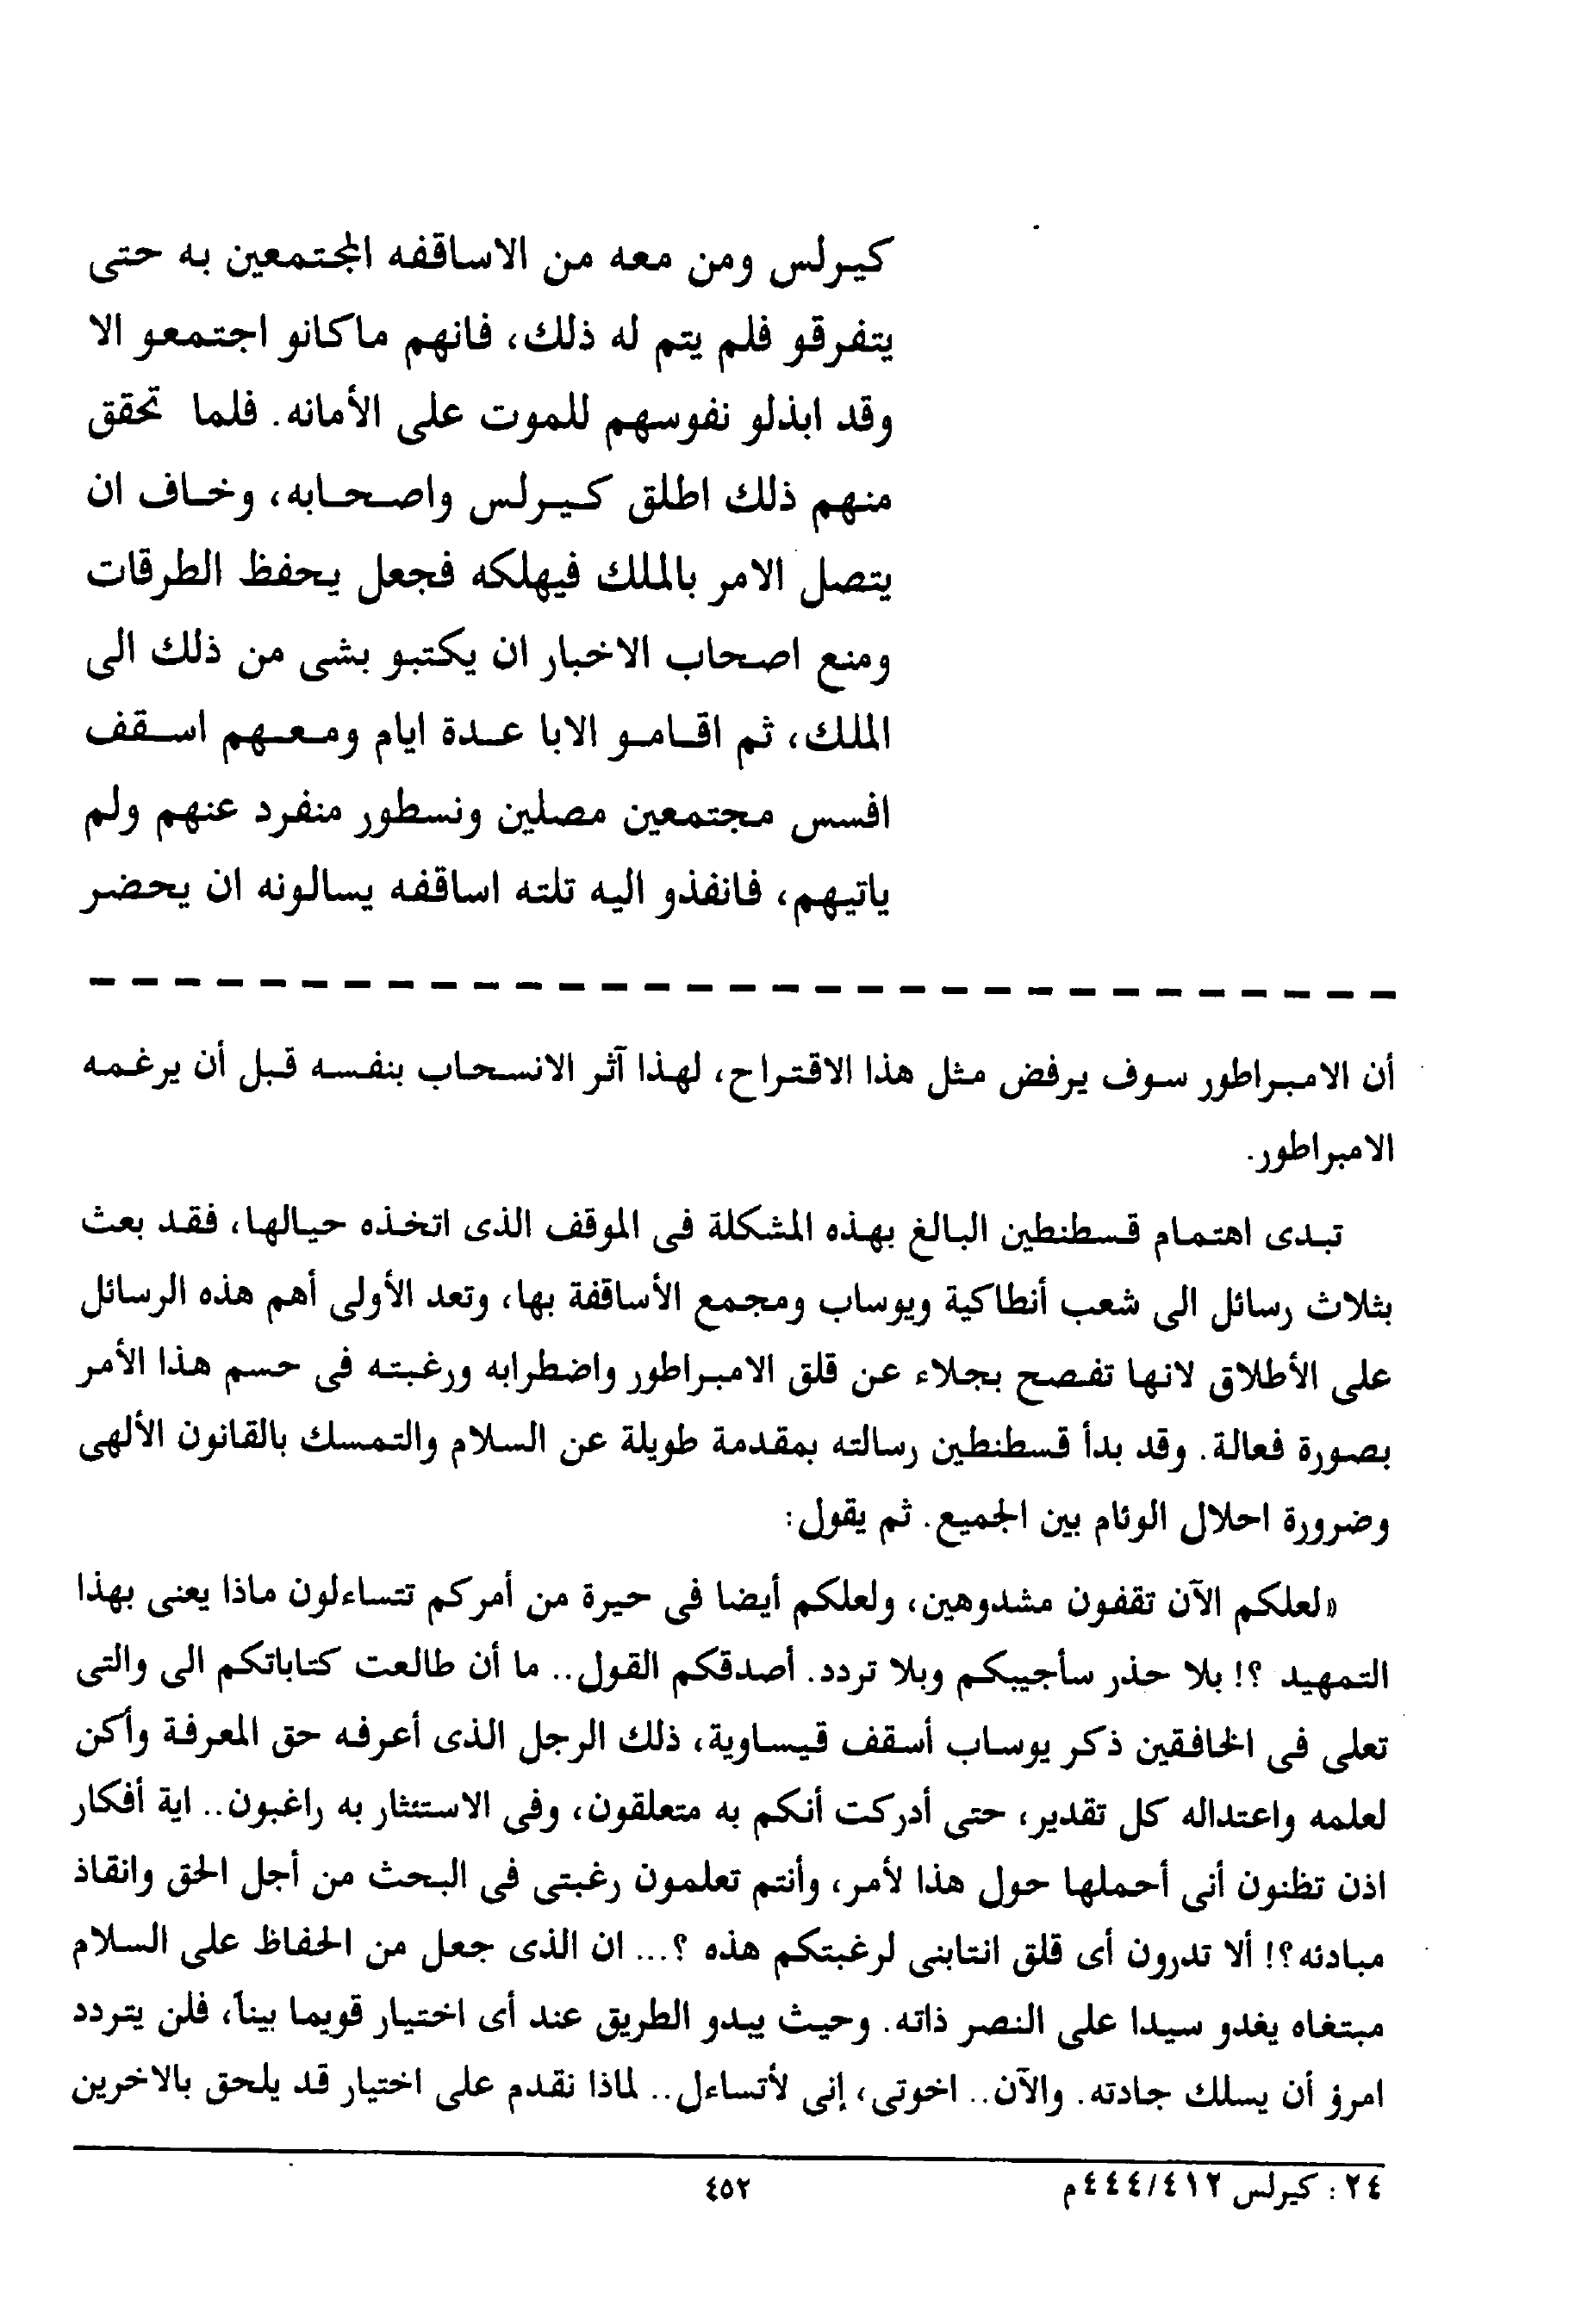 كيرلس ومن معه من الاساقفه المجتمعين به حتى
يتفرقو فلم يتم له ذلك، فانهم ماكانو اجتمعو الا
وقد ابذلو نفوسهم للموت على الأمانه. فلما تحقق
منهم ذلك اطلق كيرلس واصحابه، وخاف ان
يتصل الامر بالملك فيهلكه فجعل يحفظ الطرقات
ومنع اصحاب الاخبار ان يكتبو بشى من ذلك الى
الملك، ثم اقامو الابا عدة ايام ومعهم اسقف
افسس مجتمعين مصلين ونسطور منفرد عنهم ولم
ياتيهم، فانفذو اليه تلته اساقفه يسالونه ان يحضر
أن الامبراطور سوف يرفض مثل هذا الاقتراح، لهذا آثر الانسحاب بنفسه قبل أن يرغمه
الامبراطور.
تبدى اهتمام قسطنطين البالغ بهذه المشكلة فى الموقف الذى اتخذه حيالها، فقد بعث
بثلاث رسائل الى شعب أنطاكية ويوساب ومجمع الأساقفة بها، وتعد الأولى أهم هذه الرسائل
على الأطلاق لانها تفصح بجلاء عن قلق الامبراطور واضطرابه ورغبته فى حسم هذا الأمر
بصورة فعالة. وقد بدأ قسطنطين رسالته بمقدمة طويلة عن السلام والتمسك بالقانون الألهى
وضرورة احلال الوئام بين الجميع. ثم يقول:
«لعلكم الآن تقفون مشدوهين، ولعلكم أيضا فى حيرة من أمركم تتساءلون ماذا يعنى بهذا
التمهيد ؟! بلا حذر سأجيبكم وبلا تردد. أصدقكم القول.. ما أن طالعت كتاباتكم الى والتى
تعلى فى الخافقين ذكر يوساب أسقف قيساوية، ذلك الرجل الذى أعرفه حق المعرفة وأكن
لعلمه واعتداله كل تقدير، حتى أدركت أنكم به متعلقون، وفى الاستئثار به راغبون.. اية أفكار
اذن تظنون أنى أحملها حول هذا لأمر، وأنتم تعلمون رغبتى فى البحث من أجل الحق وانقاذ
مبادئه؟! ألا تدرون أى قلق انتابنى لرغبتكم هذه ؟... ان الذى جعل من الحفاظ على السلام
مبتغاه يغدو سيدا على النصر ذاته. وحيث يبدو الطريق عند أى اختيار قويما بيناً، فلن يتردد
امرؤ أن يسلك جادته. والآن.. اخوتى، إنى لأتساءل.. لماذا نقدم على اختيار قد يلحق بالاخرين
٢٤ : كيرلس ٤٤٤/٤١٢م
٤٥٢